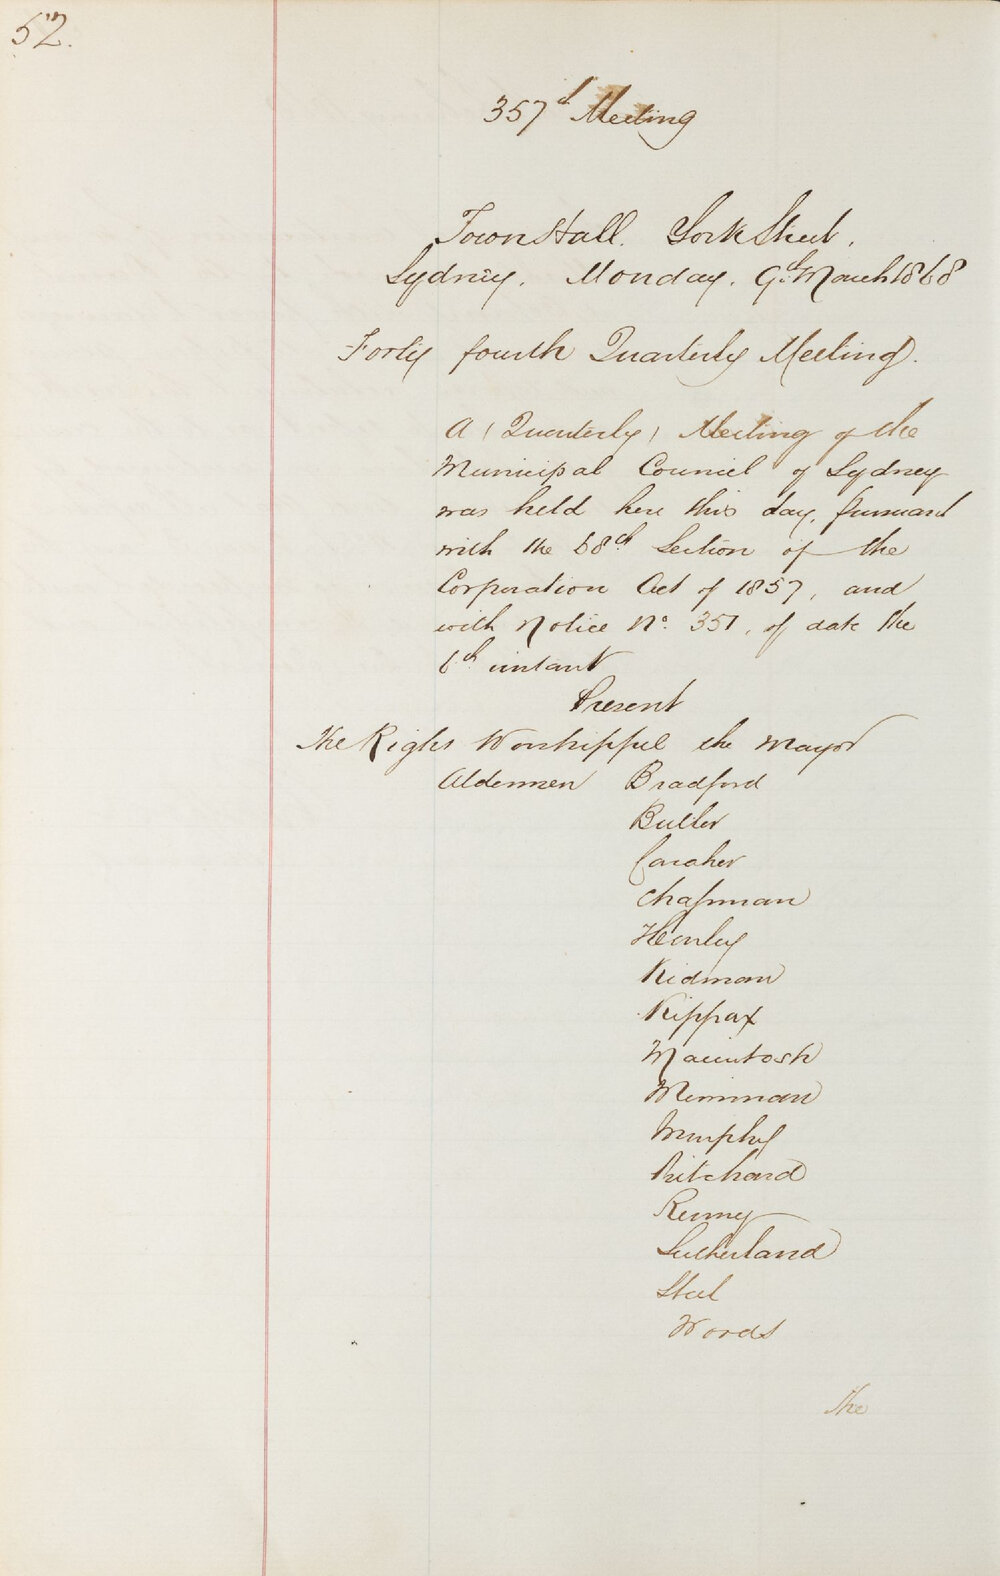 52.
357th Meeting
Town Hall. York Street.
Sydney. Monday. 9th March 1868
Forty fourth Quarterly Meeting.
A (Quarterly) Meeting of the
Municipal Council of Sydney
was held here this day, pursuant
with the 68th Section of the
Corporation Act of 1857, and
with Notice No. 351, of date the
6th instant
Present
The Right Worshipful the Mayor
Aldermen Bradford
Butler
Caraher
Chapman
Henley
Kidman
Kippax
Macintosh
Merriman
Murphy
Pritchard
Renny
Sutherland
Steel
Woods
The